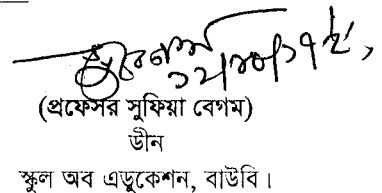 (প্রফেসর সুফিয়া বেগম)
ডীন
স্কুল অব এডুকেশন, বাউবি।